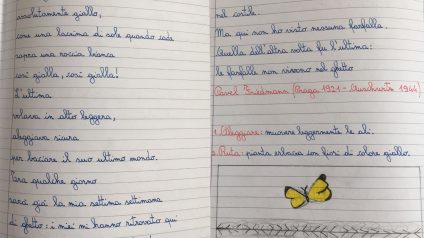 assolutamente giallo,
come una lacrima di sole quando cade
sopra una roccia bianca
così gialla, così gialla!
L'ultima
volava in alto leggera,
aleggiava sicura
per baciare il suo ultimo mondo.
Tra qualche giorno
sarà già la mia settima settimana
di ghetto: i miei mi hanno ritrovato qui
nel cortile.
Ma qui non ho visto nessuna farfalla.
Quella dell'altra volta fu l'ultima:
le farfalle non vivono nel ghetto
Pavel Friedmann (Praga 1921 - Auschwitz 1944)
1. Aleggiare: muovere leggermente le ali.
2. Ruta: pianta erbacea con fiori di colore giallo.